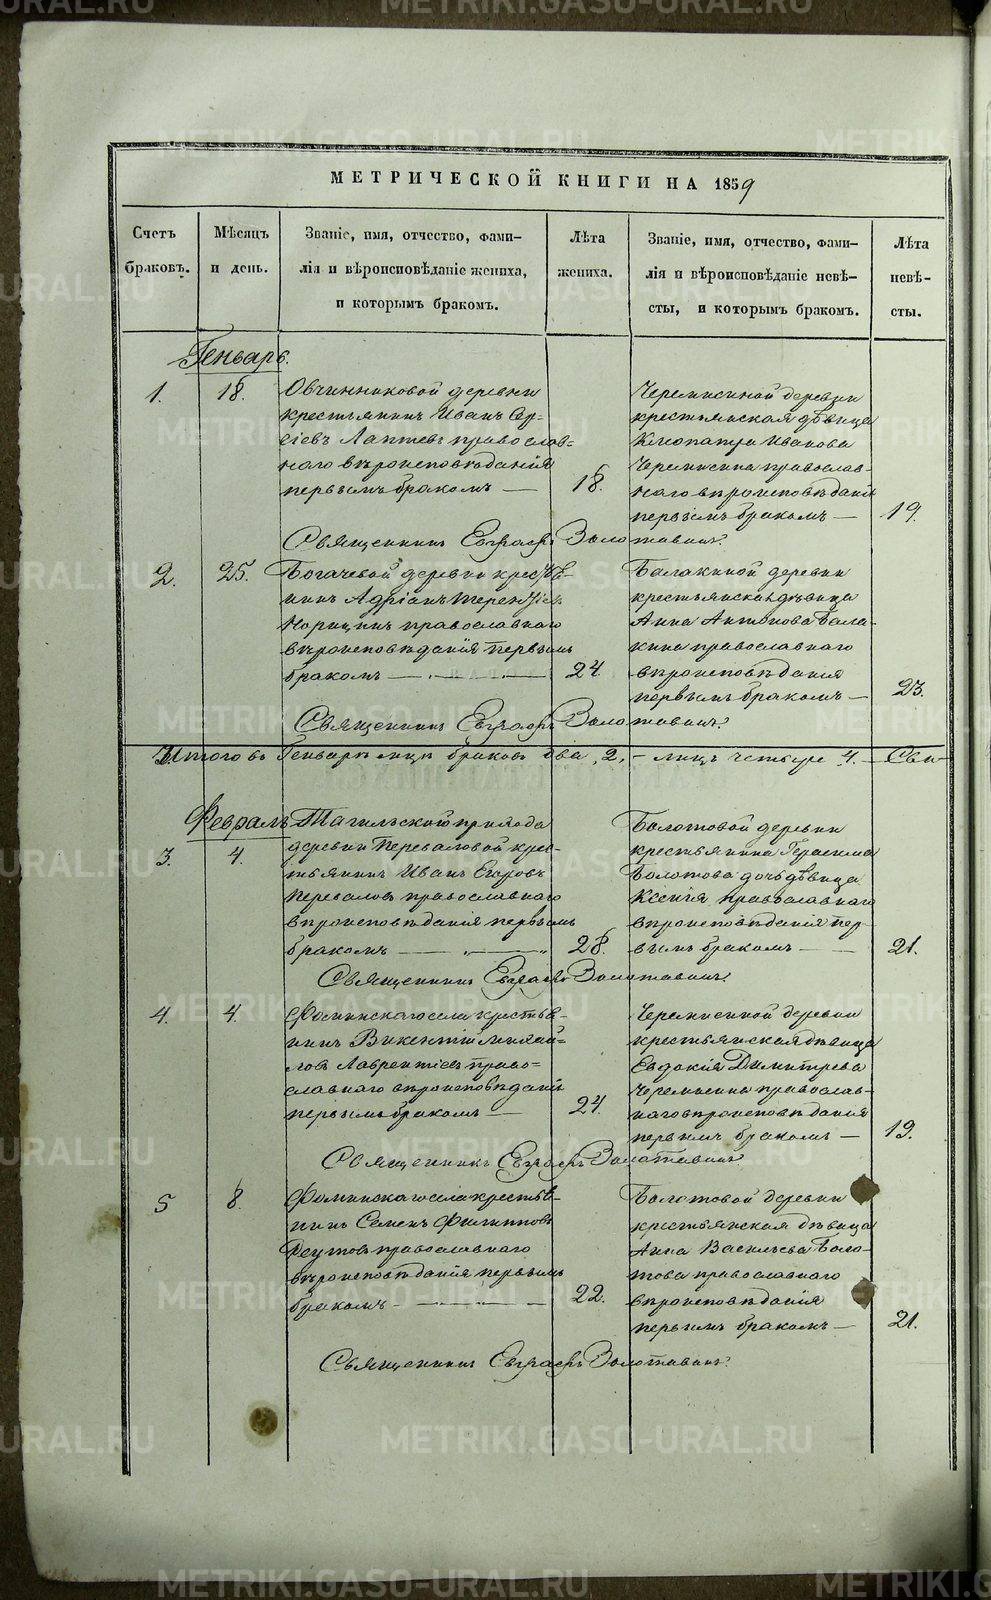 МЕТРИЧЕСКОЙ КНИГИ НА 1859
Счетъ
браковъ.
Мѣсяцъ
и день.
Званіе, имя, отчество, фами-
лія и вѣроисповѣданіе жениха,
и которымъ бракомъ.
Лѣта
жениха.
Званіе, имя, отчество, фами-
лія и вѣроисповѣданіе невѣ-
сты, и которымъ бракомъ.
Лѣта
невѣ-
сты.
Генварь.
1.
18.
Овчинниковой деревни
крестьянинъ Иванъ Сер-
гіевъ Лаптевъ православ-
наго вѣроисповѣданія
первымъ бракомъ —
18.
Черемисиной деревни
крестьянская дѣвица
Клеопатра Иванова
Черемисина православ-
наго вѣроисповѣданія
первымъ бракомъ —
19.
Священникъ Евграфъ Золотавинъ.
2.
25.
Богачевой деревни крестья-
нинъ Адріанъ Терентіев
Норицинъ православнаго
вѣроисповѣданія первымъ
бракомъ —
24.
Балакиной деревни
крестьянская дѣвица
Анна Антонова Бала-
кина православнаго
вѣроисповѣданія
первымъ бракомъ —
23.
Священникъ Евграфъ Золотавинъ.
Итого въ Генварѣ мцѣ браковъ два, 2, — лицъ четыре 4. —
Февраль
3.
4.
Тагильскаго прихода
деревни Переваловой крес-
тьянинъ Иванъ Егоровъ
Переваловъ православнаго
вѣроисповѣданія первымъ
бракомъ —
28.
Болотовой деревни
крестьянина Герасима
Болотова дочь дѣвица
Ксенія православнаго
вѣроисповѣданія пер-
вымъ бракомъ —
21.
Священникъ Евграфъ Золотавинъ.
4.
4.
Фоминскаго села крестья-
нинъ Викентій Михай-
ловъ Лаврентіевъ право-
славнаго вѣроисповѣданія
первымъ бракомъ —
24.
Черемисиной деревни
крестьянская дѣвица
Евдокія Димитріева
Черемисина православ-
наго вѣроисповѣданія
первымъ бракомъ —
19.
Священникъ Евграфъ Золотавинъ.
5
8.
Фоминскаго села крестья-
нинъ Семенъ Филипповъ
Реутовъ православнаго
вѣроисповѣданія первымъ
бракомъ —
22.
Болотовой деревни
крестьянская дѣвица
Анна Васильева Боло-
това православнаго
вѣроисповѣданія
первымъ бракомъ —
21.
Священникъ Евграфъ Золотавинъ.
METRIKI.GASO-URAL.RU